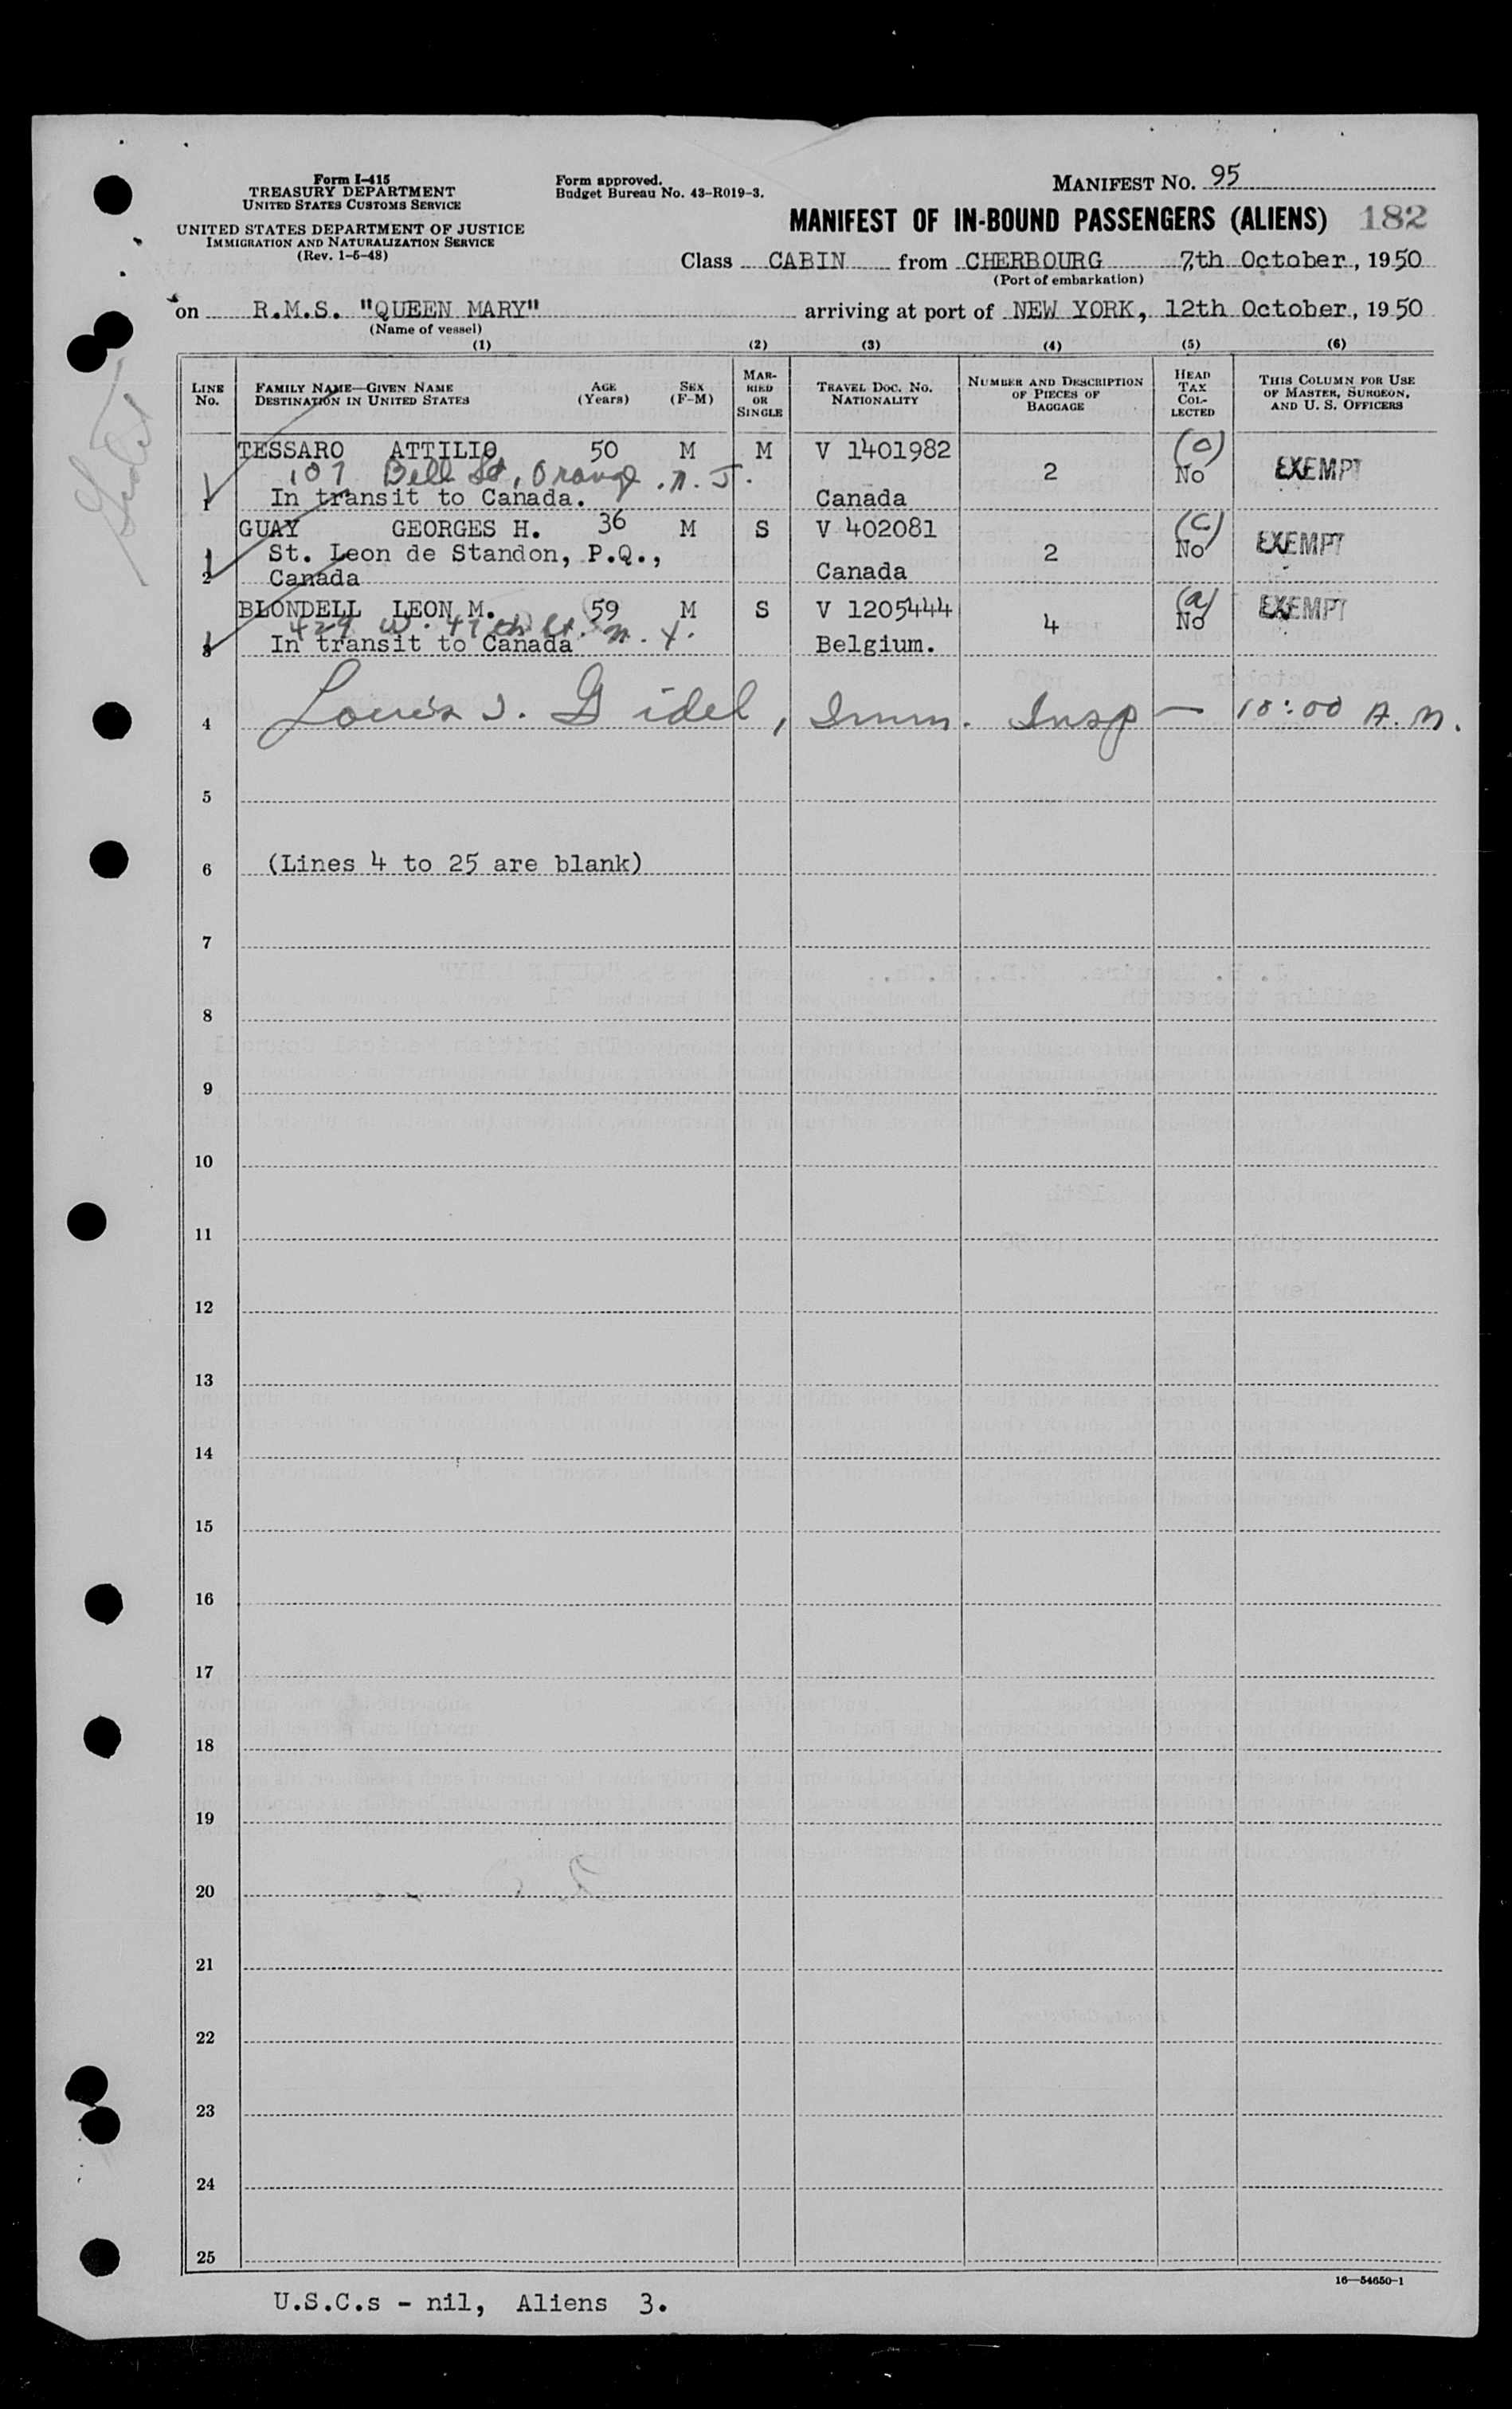 Form I-415
TREASURY DEPARTMENT
UNITED STATES CUSTOMS SERVICE
UNITED STATES DEPARTMENT OF JUSTICE
IMMIGRATION AND NATURALIZATION SERVICE
(Rev. 1-6-48)
Form approved.
Budget Bureau No. 43-R019-3.
MANIFEST NO. 95
MANIFEST OF IN-BOUND PASSENGERS (ALIENS) 182
Class CABIN from CHERBOURG 7th October, 1950
(Port of embarkation)
on R.M.S. "QUEEN MARY" arriving at port of NEW YORK, 12th October, 1950
(Name of vessel)
(1) (2) (3) (4) (5) (6)
LINE No. FAMILY NAME—GIVEN NAME DESTINATION IN UNITED STATES AGE (Years) SEX (F-M) MARRIED OR SINGLE TRAVEL DOC. NO. NATIONALITY NUMBER AND DESCRIPTION OF PIECES OF BAGGAGE HEAD TAX COLLECTED THIS COLUMN FOR USE OF MASTER, SURGEON, AND U. S. OFFICERS
TESSARO ATTILIO 50 M M V 1401982 2 (c) No EXEMPT
107 Bell St, Orange. N. J.
1 In transit to Canada. Canada
GUAY GEORGES H. 36 M S V 402081 2 (c) No EXEMPT
St. Leon de Standon, P.Q.,
2 Canada Canada
BLONDELL LEON M. 59 M S V 1205444 4 (a) No EXEMPT
429 W. 47th St. N. Y.
3 In transit to Canada Belgium.
4 Louis J. Gidel, Imm. Insp — 10:00 A.M.
5
6 (Lines 4 to 25 are blank)
7
8
9
10
11
12
13
14
15
16
17
18
19
20
21
22
23
24
25
16—54650-1
U.S.C.s - nil, Aliens 3.